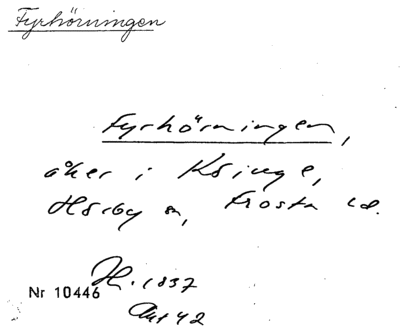 Fyrhörningen
Fyrhörningen,
åker i Köinge,
Hörby sn, Frosta hd.
H. 1837
Nr 10446
Akt 42